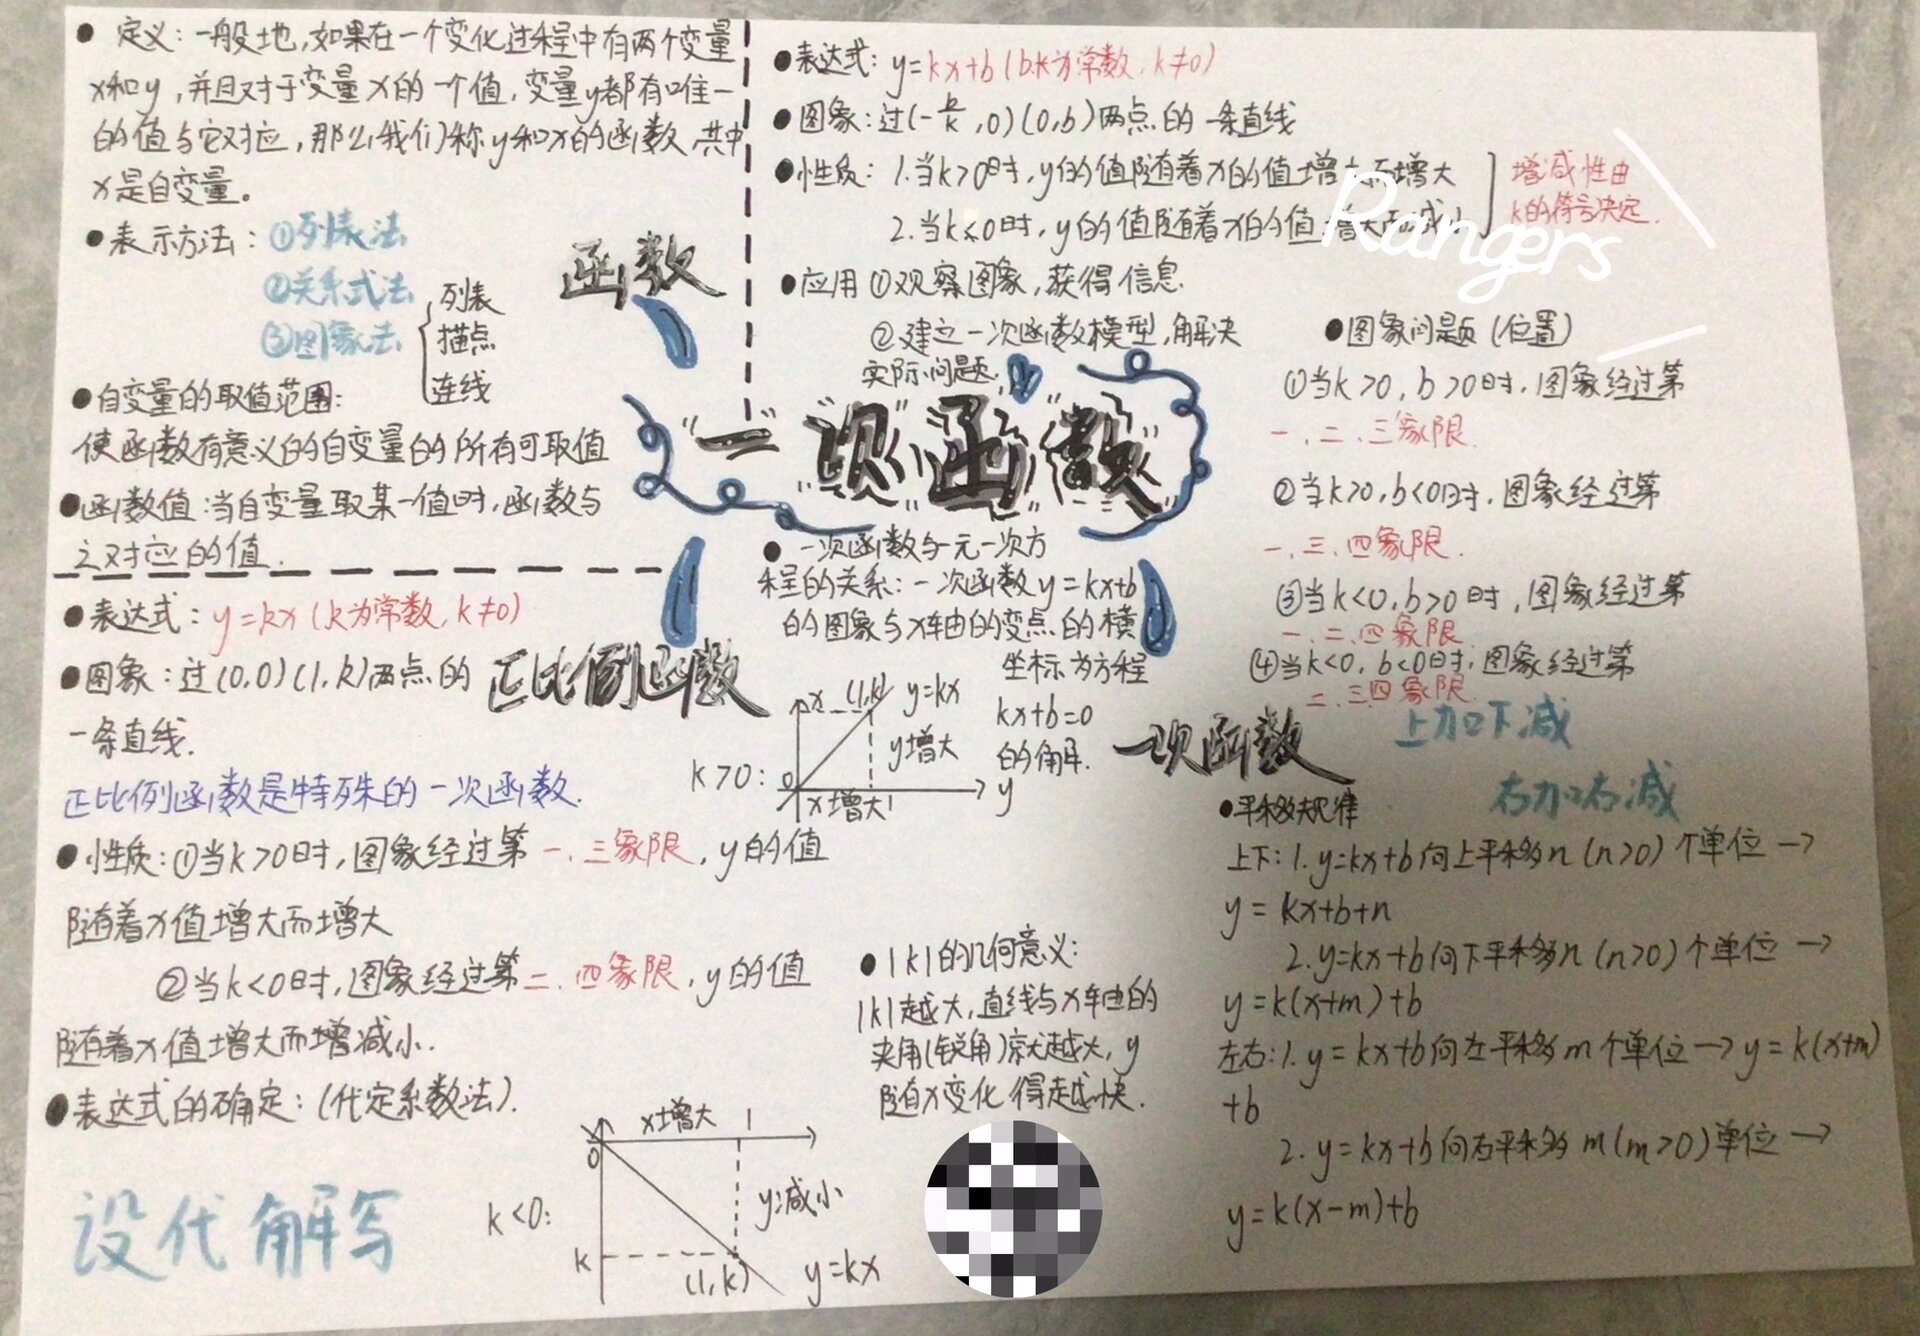 ● 定义：一般地,如果在一个变化过程中有两个变量
x和y,并且对于变量x的一个值,变量y都有唯一
的值与它对应,那么我们称y和x的函数,其中
x是自变量。
● 表示方法：①列表法
②关系式法
③图象法
列表
描点
连线
函数
● 自变量的取值范围：
使函数有意义的自变量的所有可取值
● 函数值：当自变量取某一值时,函数与
之对应的值.
● 表达式：y=kx+b(b.k为常数,k≠0)
● 图象：过(-b/k,0)(0,b)两点的一条直线
● 性质：1.当k>0时,y的值随着x的值增大而增大
2.当k<0时,y的值随着x的值增大而减小
增减性由
k的符号决定.
Rangers
● 应用①观察图象,获得信息.
②建立一次函数模型,解决
实际问题.
"一次函数"
● 图象问题(位置)
①当k>0,b>0时,图象经过第
一、二、三象限.
②当k>0,b<0时,图象经过第
一、三、四象限.
③当k<0,b>0时,图象经过第
一、二、四象限
④当k<0,b<0时,图象经过第
二、三四象限
● 一次函数与一元一次方
程的关系：一次函数y=kx+b
的图象与x轴的变点的横
坐标为方程
kx+b=0
的解.
● 表达式：y=kx(k为常数,k≠0)
● 图象：过(0,0)(1,k)两点的
一条直线.
正比例函数
正比例函数是特殊的一次函数.
k>0：
x (1,k) y=kx
y增大
0
x增大1
y
● 性质：①当k>0时,图象经过第一、三象限,y的值
随着x值增大而增大
②当k<0时,图象经过第二、四象限,y的值
随着x值增大而增减小.
● 表达式的确定：(代定系数法).
设代解写
k<0：
x增大 1
0
y减小
k
(1,k) y=kx
● |k|的几何意义：
|k|越大,直线与x轴的
夹角(锐角)就越大,y
随x变化得越快.
一次函数
上加下减
右加右减
● 平移规律
上下：1.y=kx+b向上平移n(n>0)个单位→
y=kx+b+n
2.y=kx+b向下平移n(n>0)个单位→
y=k(x+m)+b
左右：1.y=kx+b向左平移m个单位→y=k(x+m)
+b
2.y=kx+b向右平移m(m>0)单位→
y=k(x-m)+b